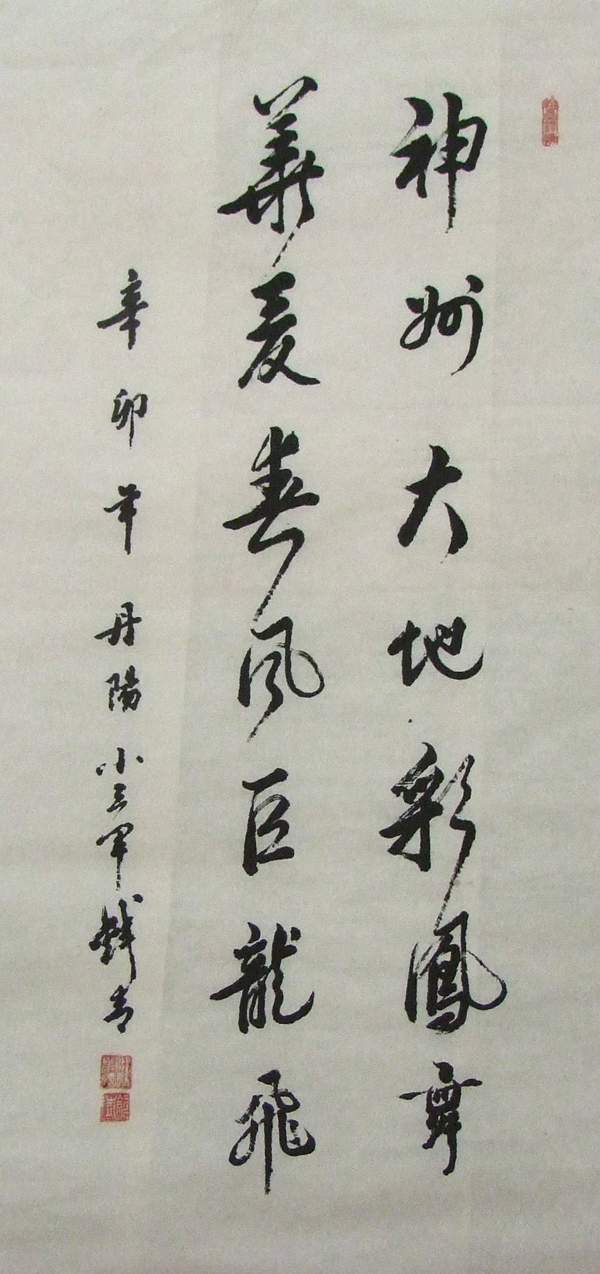 神州大地彩鳳舞
華夏春風巨龍飛
辛卯年丹陽小三軍書